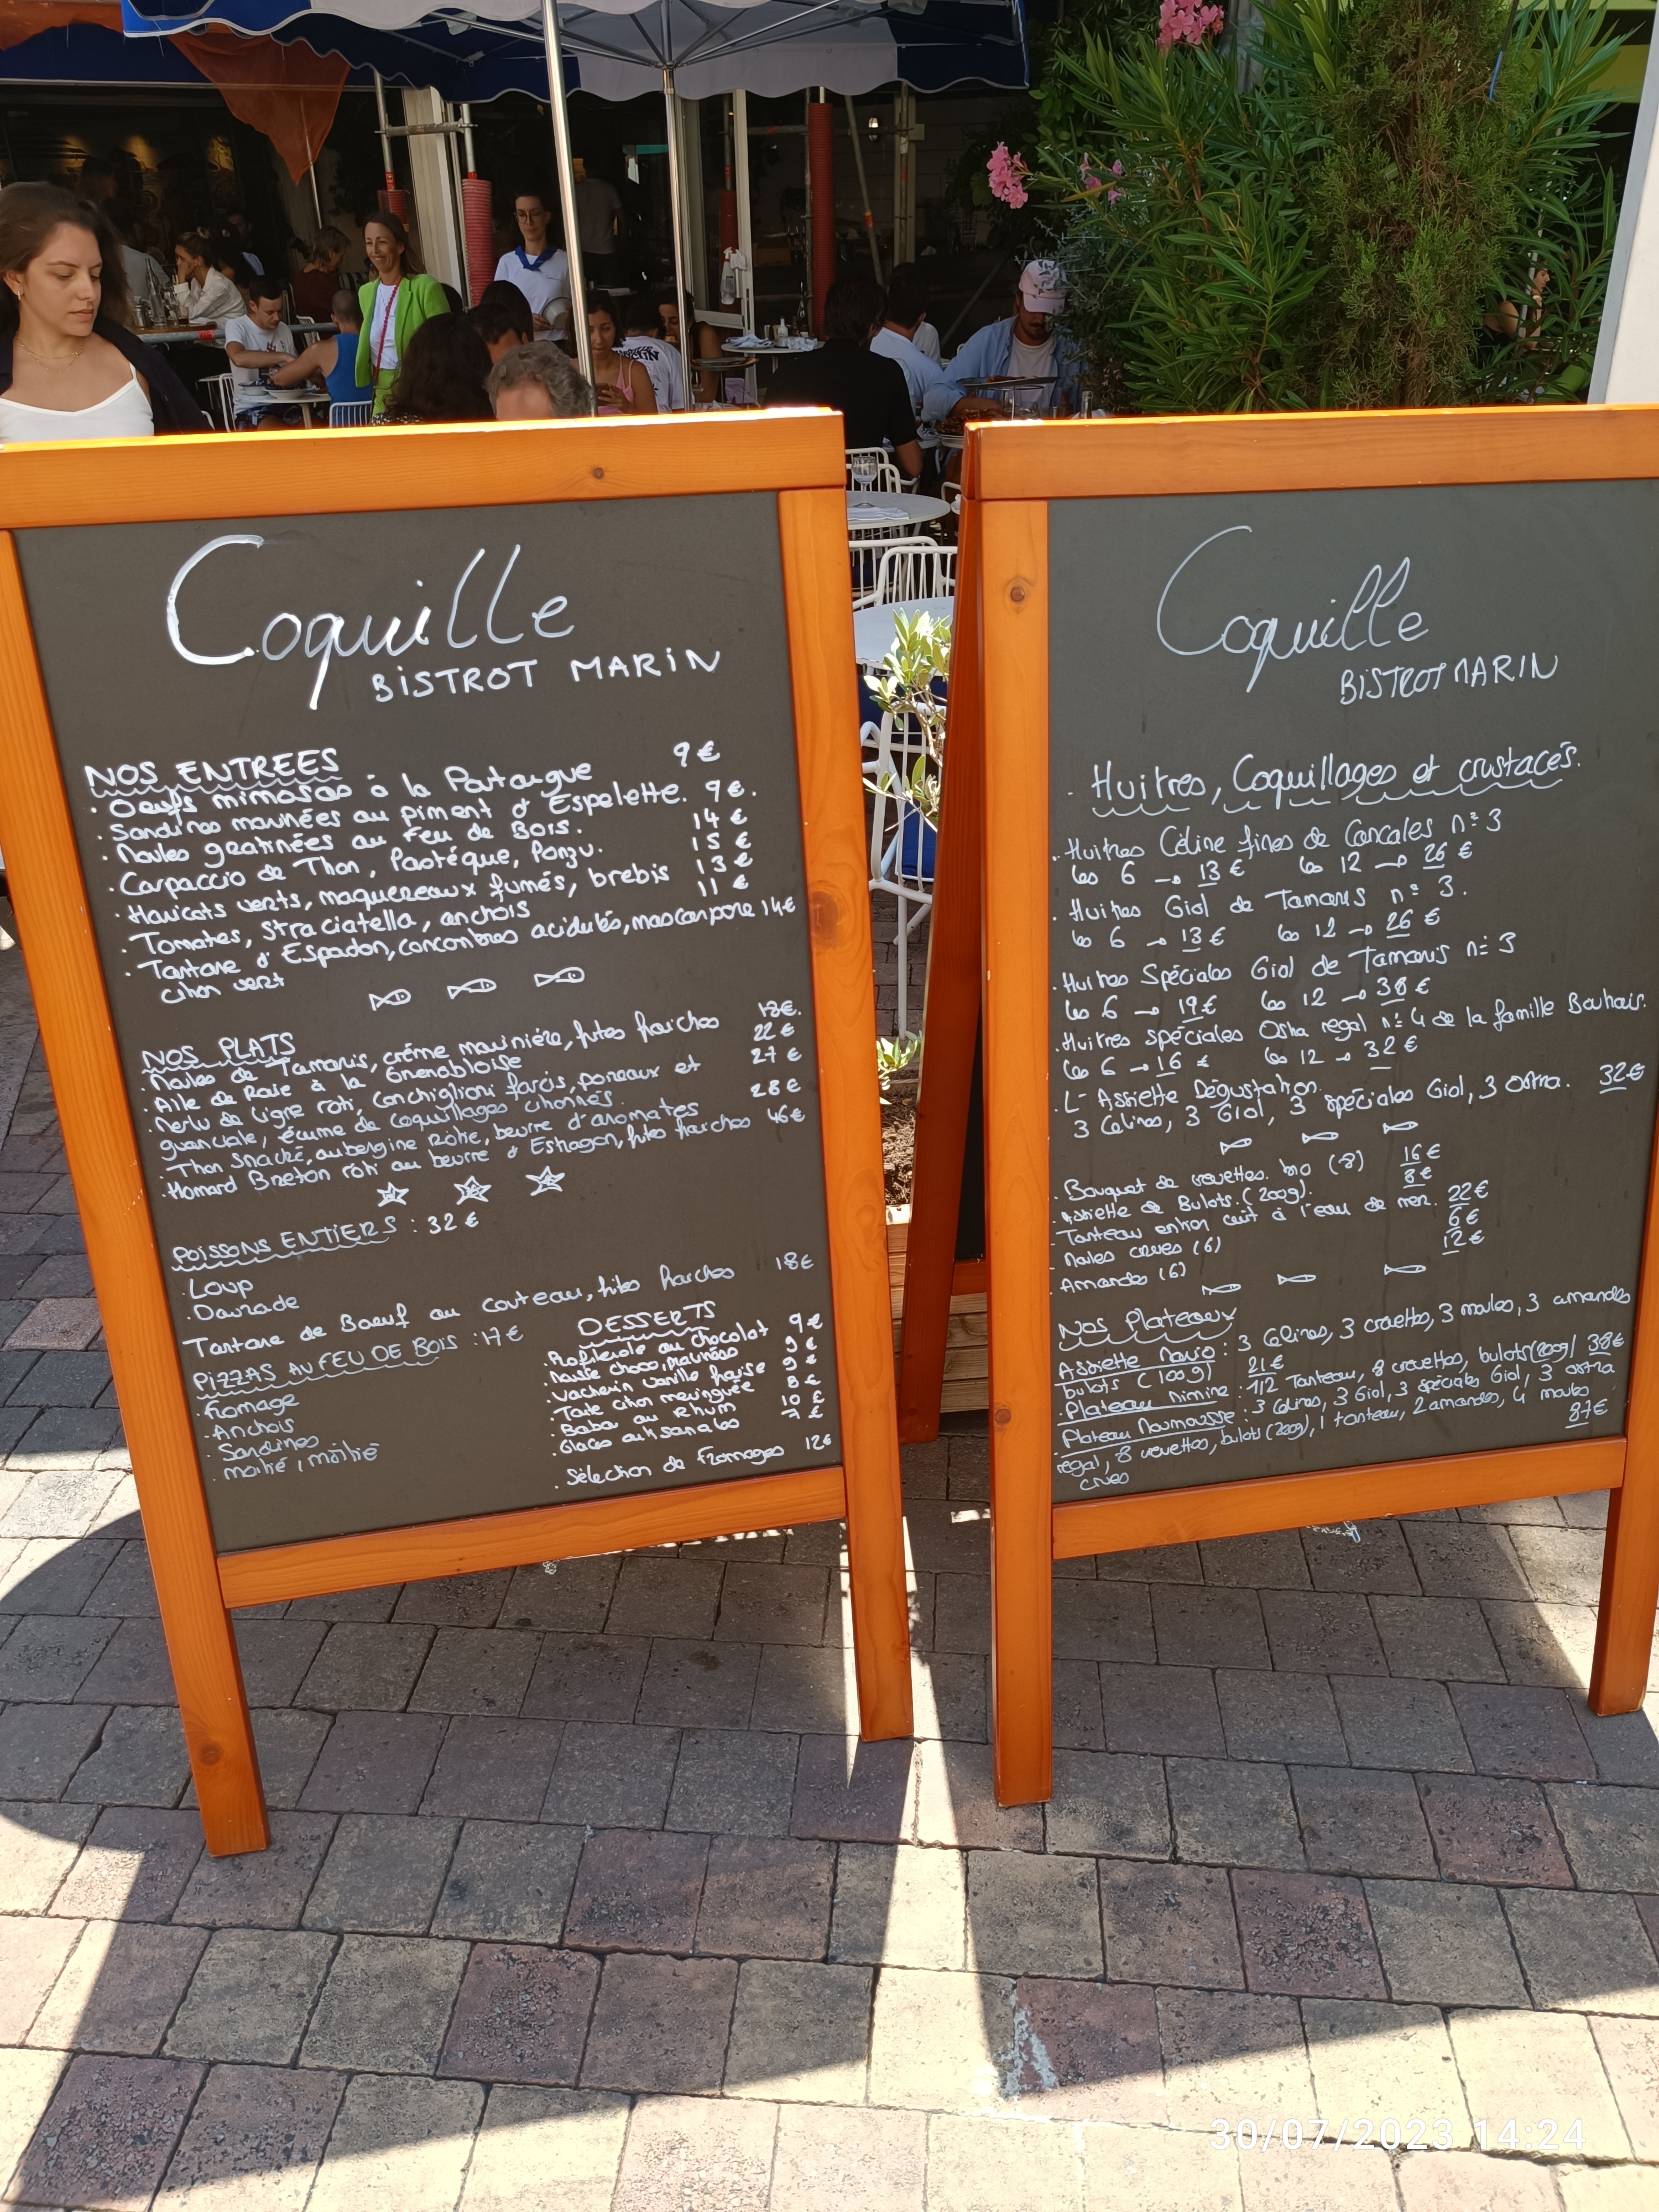 Coquille
BISTROT MARIN
NOS ENTREES
. Oeufs mimosas à la Poutargue 9 €
. Sardines marinées au piment d'Espelette. 9 €.
. Moules gratinées au Feu de Bois. 14 €
. Carpaccio de Thon, Pastéque, Ponzu. 15 €
. Haricots verts, maquereaux fumés, brebis 13 €
. Tomates, straciatella, anchois 11 €
. Tartare d'Espadon, concombres acidulés, mascarpone 14€
citron vert
NOS PLATS
. Moules de Tamaris, créme marinière, frites fraiches 18€.
. Aile de Raie à la Grenobloise 22 €
. Merlu de ligne rôti, conchiglioni farcis, poireaux et 27 €
guanciale, écume de coquillages citronnés.
. Thon snacké, aubergine Rôtie, beurre d'aromates 28€
. Homard Breton rôti au beurre d'Estragon, frites fraiches 46€
POISSONS ENTIERS : 32 €
. Loup
. Daurade
Tartare de Boeuf au couteau, frites fraiches 18€
PIZZAS AU FEU DE BOIS : 17€
. fromage
. Anchois
. Sardines
. moitié, moitié
DESSERTS
. Profiterole au chocolat 9€
. Mousse choco, 9 €
. Vacherin vanille fraise 9 €
. Tarte citron meringuée 8 €
. Baba au Rhum 10 €
. Glaces artisanales 7 €
. Sélection de Fromages 12€
Coquille
BISTROT MARIN
Huitres, Coquillages et crustacés.
. Huitres Céline fines de Cancales n° 3
les 6 → 13 € les 12 → 26 €
. Huitres Giol de Tamaris n° 3.
les 6 → 13 € les 12 → 26 €
. Huitres Spéciales Giol de Tamaris n° 3
les 6 → 19€ les 12 → 38 €
. Huitres spéciales Ostra regal n° 4 de la famille
les 6 → 16 € les 12 → 32 €
. L'Assiette Dégustation.
3 Célines, 3 Giol, 3 spéciales Giol, 3 ostra. 32€
. Bouquet de crevettes. bio (8) 16 €
. Assiette de Bulots. (200g). 8 €
. Tourteau entier cuit à l'eau de mer. 22 €
. Moules crues (6) 6 €
. Amandes (6) 12 €
Nos Plateaux
Assiette : 3 Célines, 3 crevettes, 3 moules, 3 amandes
bulots (100g) 21 €
. Plateau : 1/2 Tourteau, 8 crevettes, bulots (200g) 38€
. Plateau : 3 Célines, 3 Giol, 3 spéciales Giol, 3 ostra
regal, 8 crevettes, bulots (200g), 1 tourteau, 2 amandes, 4 moules
crues 87€
30/07/2023 14:24